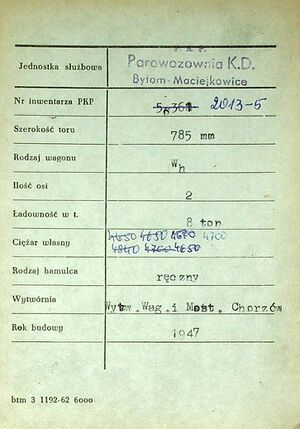 P. K. P.
Jednostka służbowa Parowozownia K.D.
Bytom-Maciejkowice
Nr inwentarza PKP 2013-5
Szerokość toru 785 mm
Rodzaj wagonu Wh
Ilość osi 2
Ładowność w t. 8 ton
Ciężar własny 4650 4650 4670 4700
4840 4700 4650
Rodzaj hamulca ręczny
Wytwórnia Wytw.Wag.i Most. Chorzów
Rok budowy 1947
btm 3 1192-62 6000